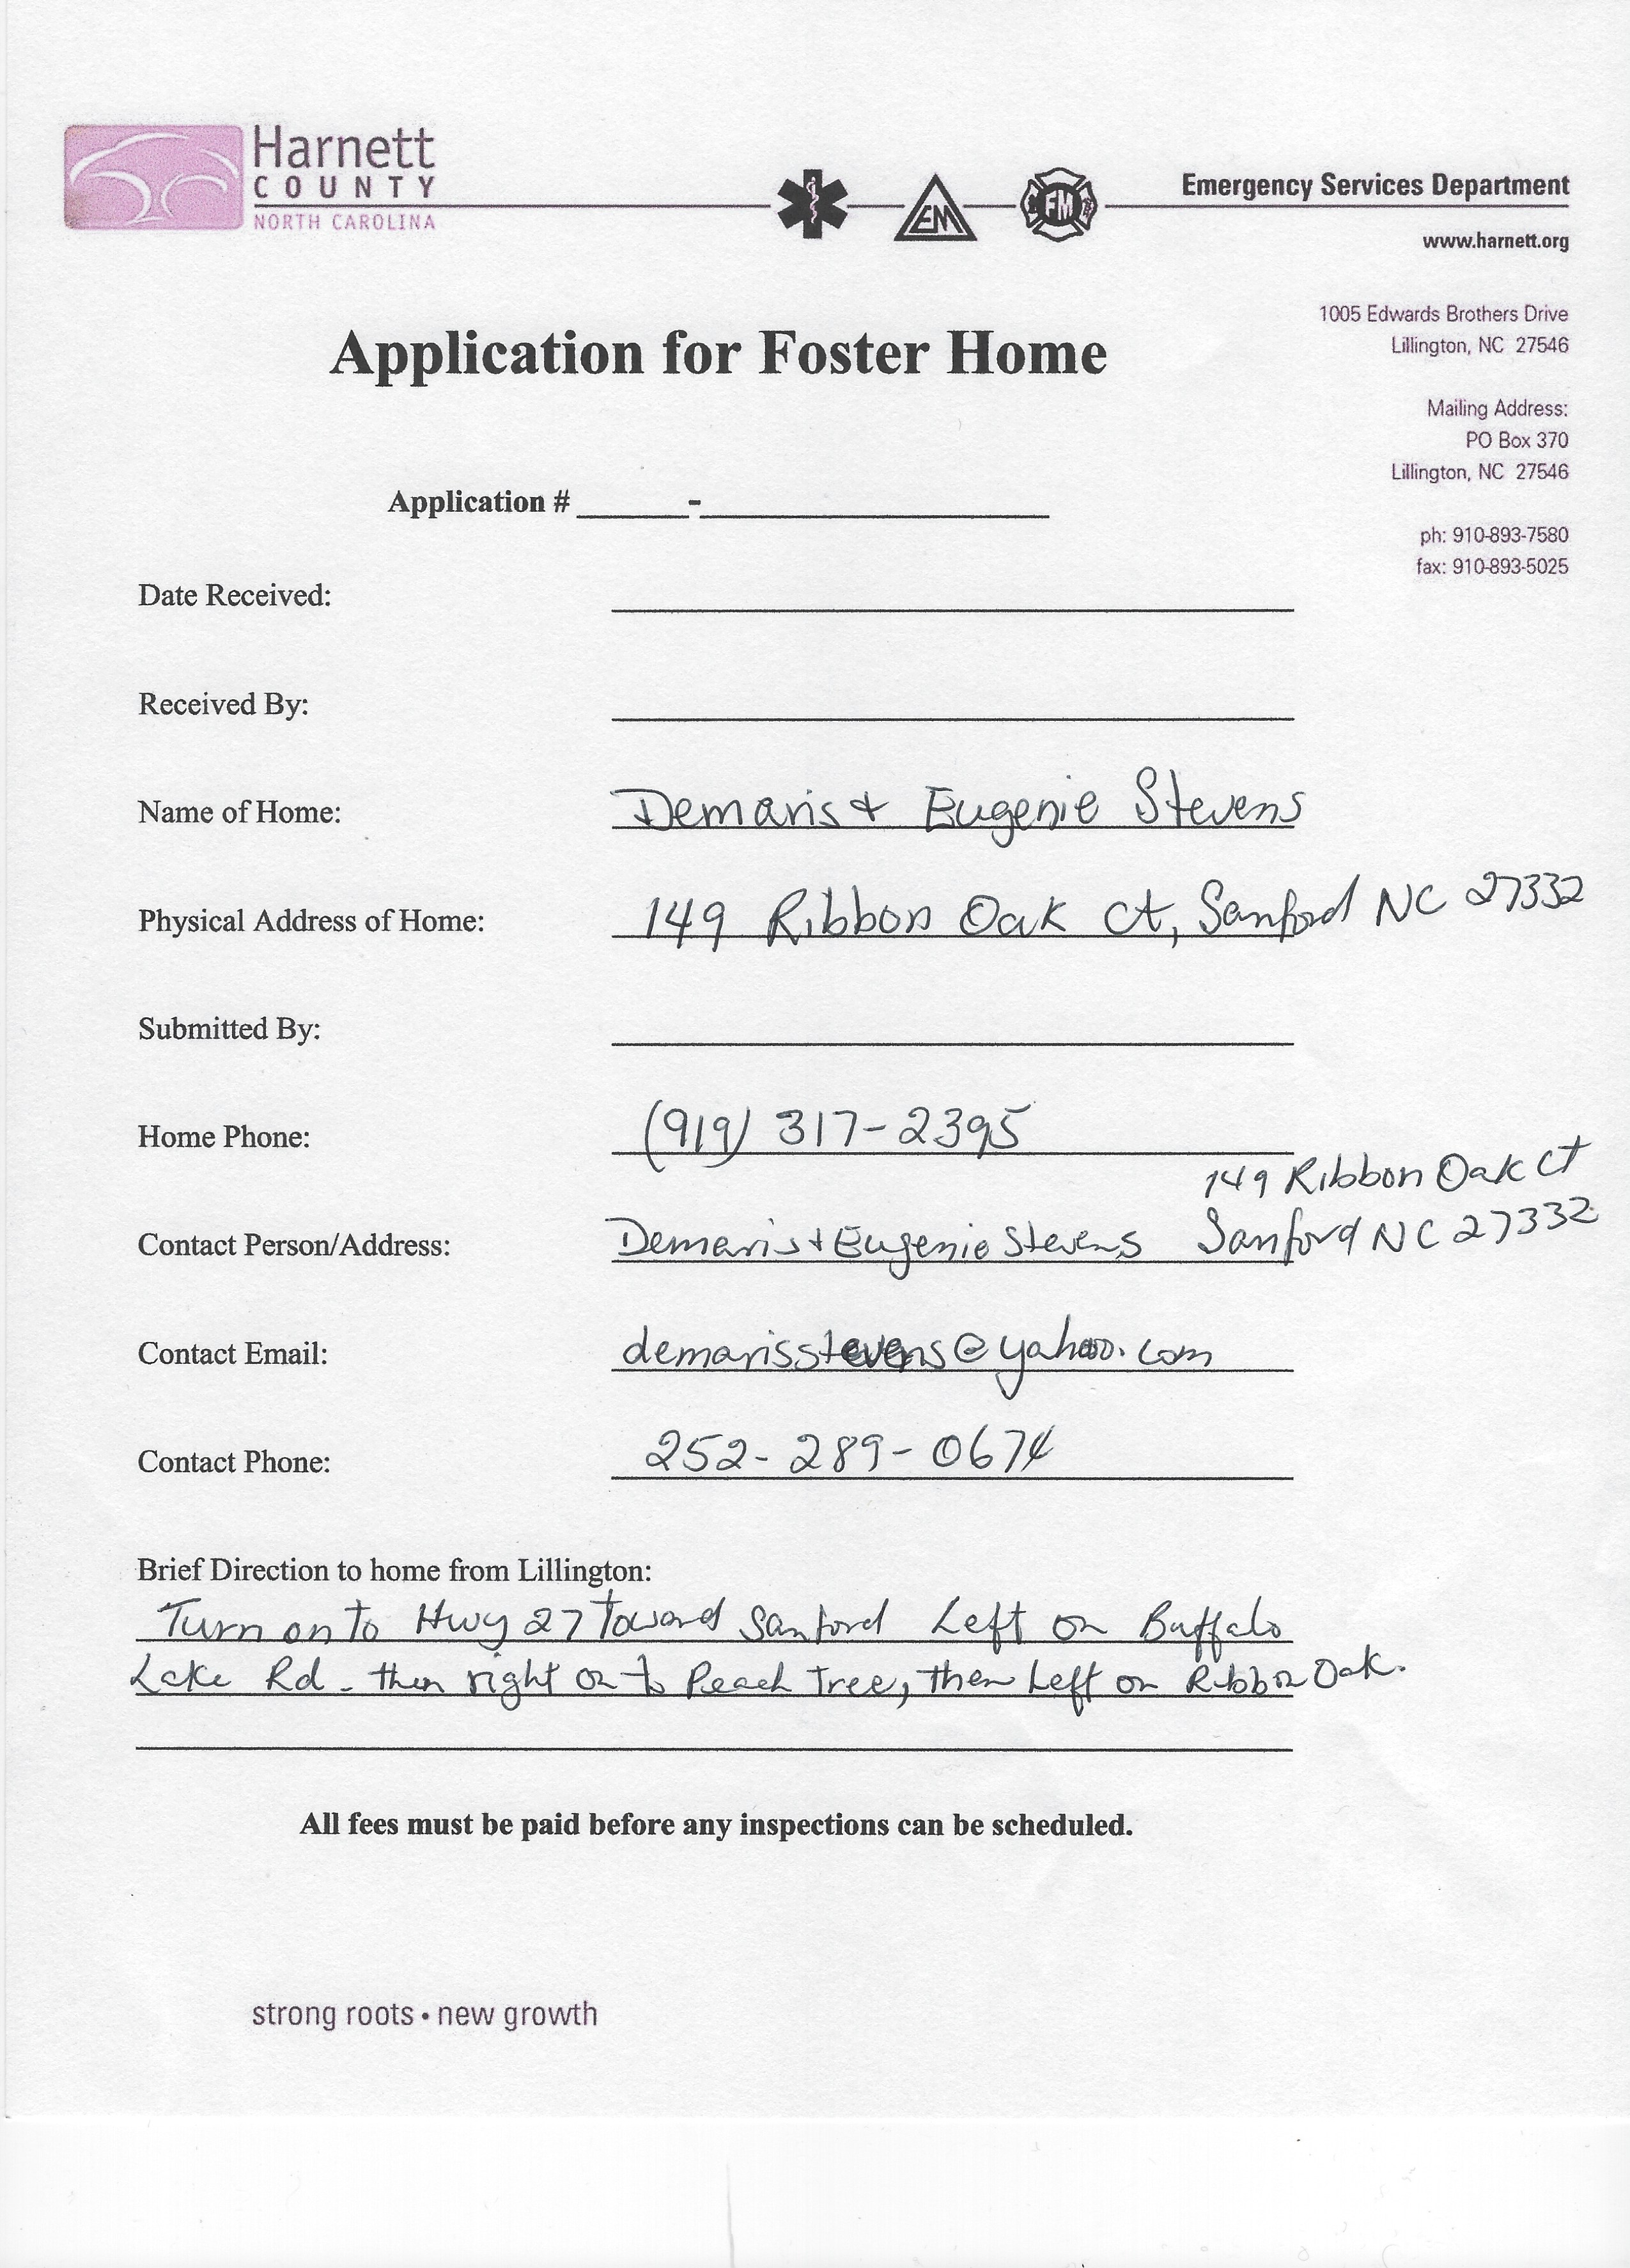 Harnett
COUNTY
NORTH CAROLINA
EM
FM
Emergency Services Department
www.harnett.org
1005 Edwards Brothers Drive
Lillington, NC 27546
Mailing Address:
PO Box 370
Lillington, NC 27546
ph: 910-893-7580
fax: 910-893-5025
Application for Foster Home
Application # ______-__________________
Date Received:
Received By:
Name of Home: Demaris + Eugenie Stevens
Physical Address of Home: 149 Ribbon Oak Ct, Sanford NC 27332
Submitted By:
Home Phone: (919) 317-2395
149 Ribbon Oak Ct
Contact Person/Address: Demaris + Eugenie Stevens Sanford NC 27332
Contact Email: demarisstevens@yahoo.com
Contact Phone: 252-289-0674
Brief Direction to home from Lillington:
Turn on to Hwy 27 Toward Sanford Left on Buffalo
Lake Rd - then right on to Peach Tree, then Left on Ribbon Oak.
All fees must be paid before any inspections can be scheduled.
strong roots • new growth